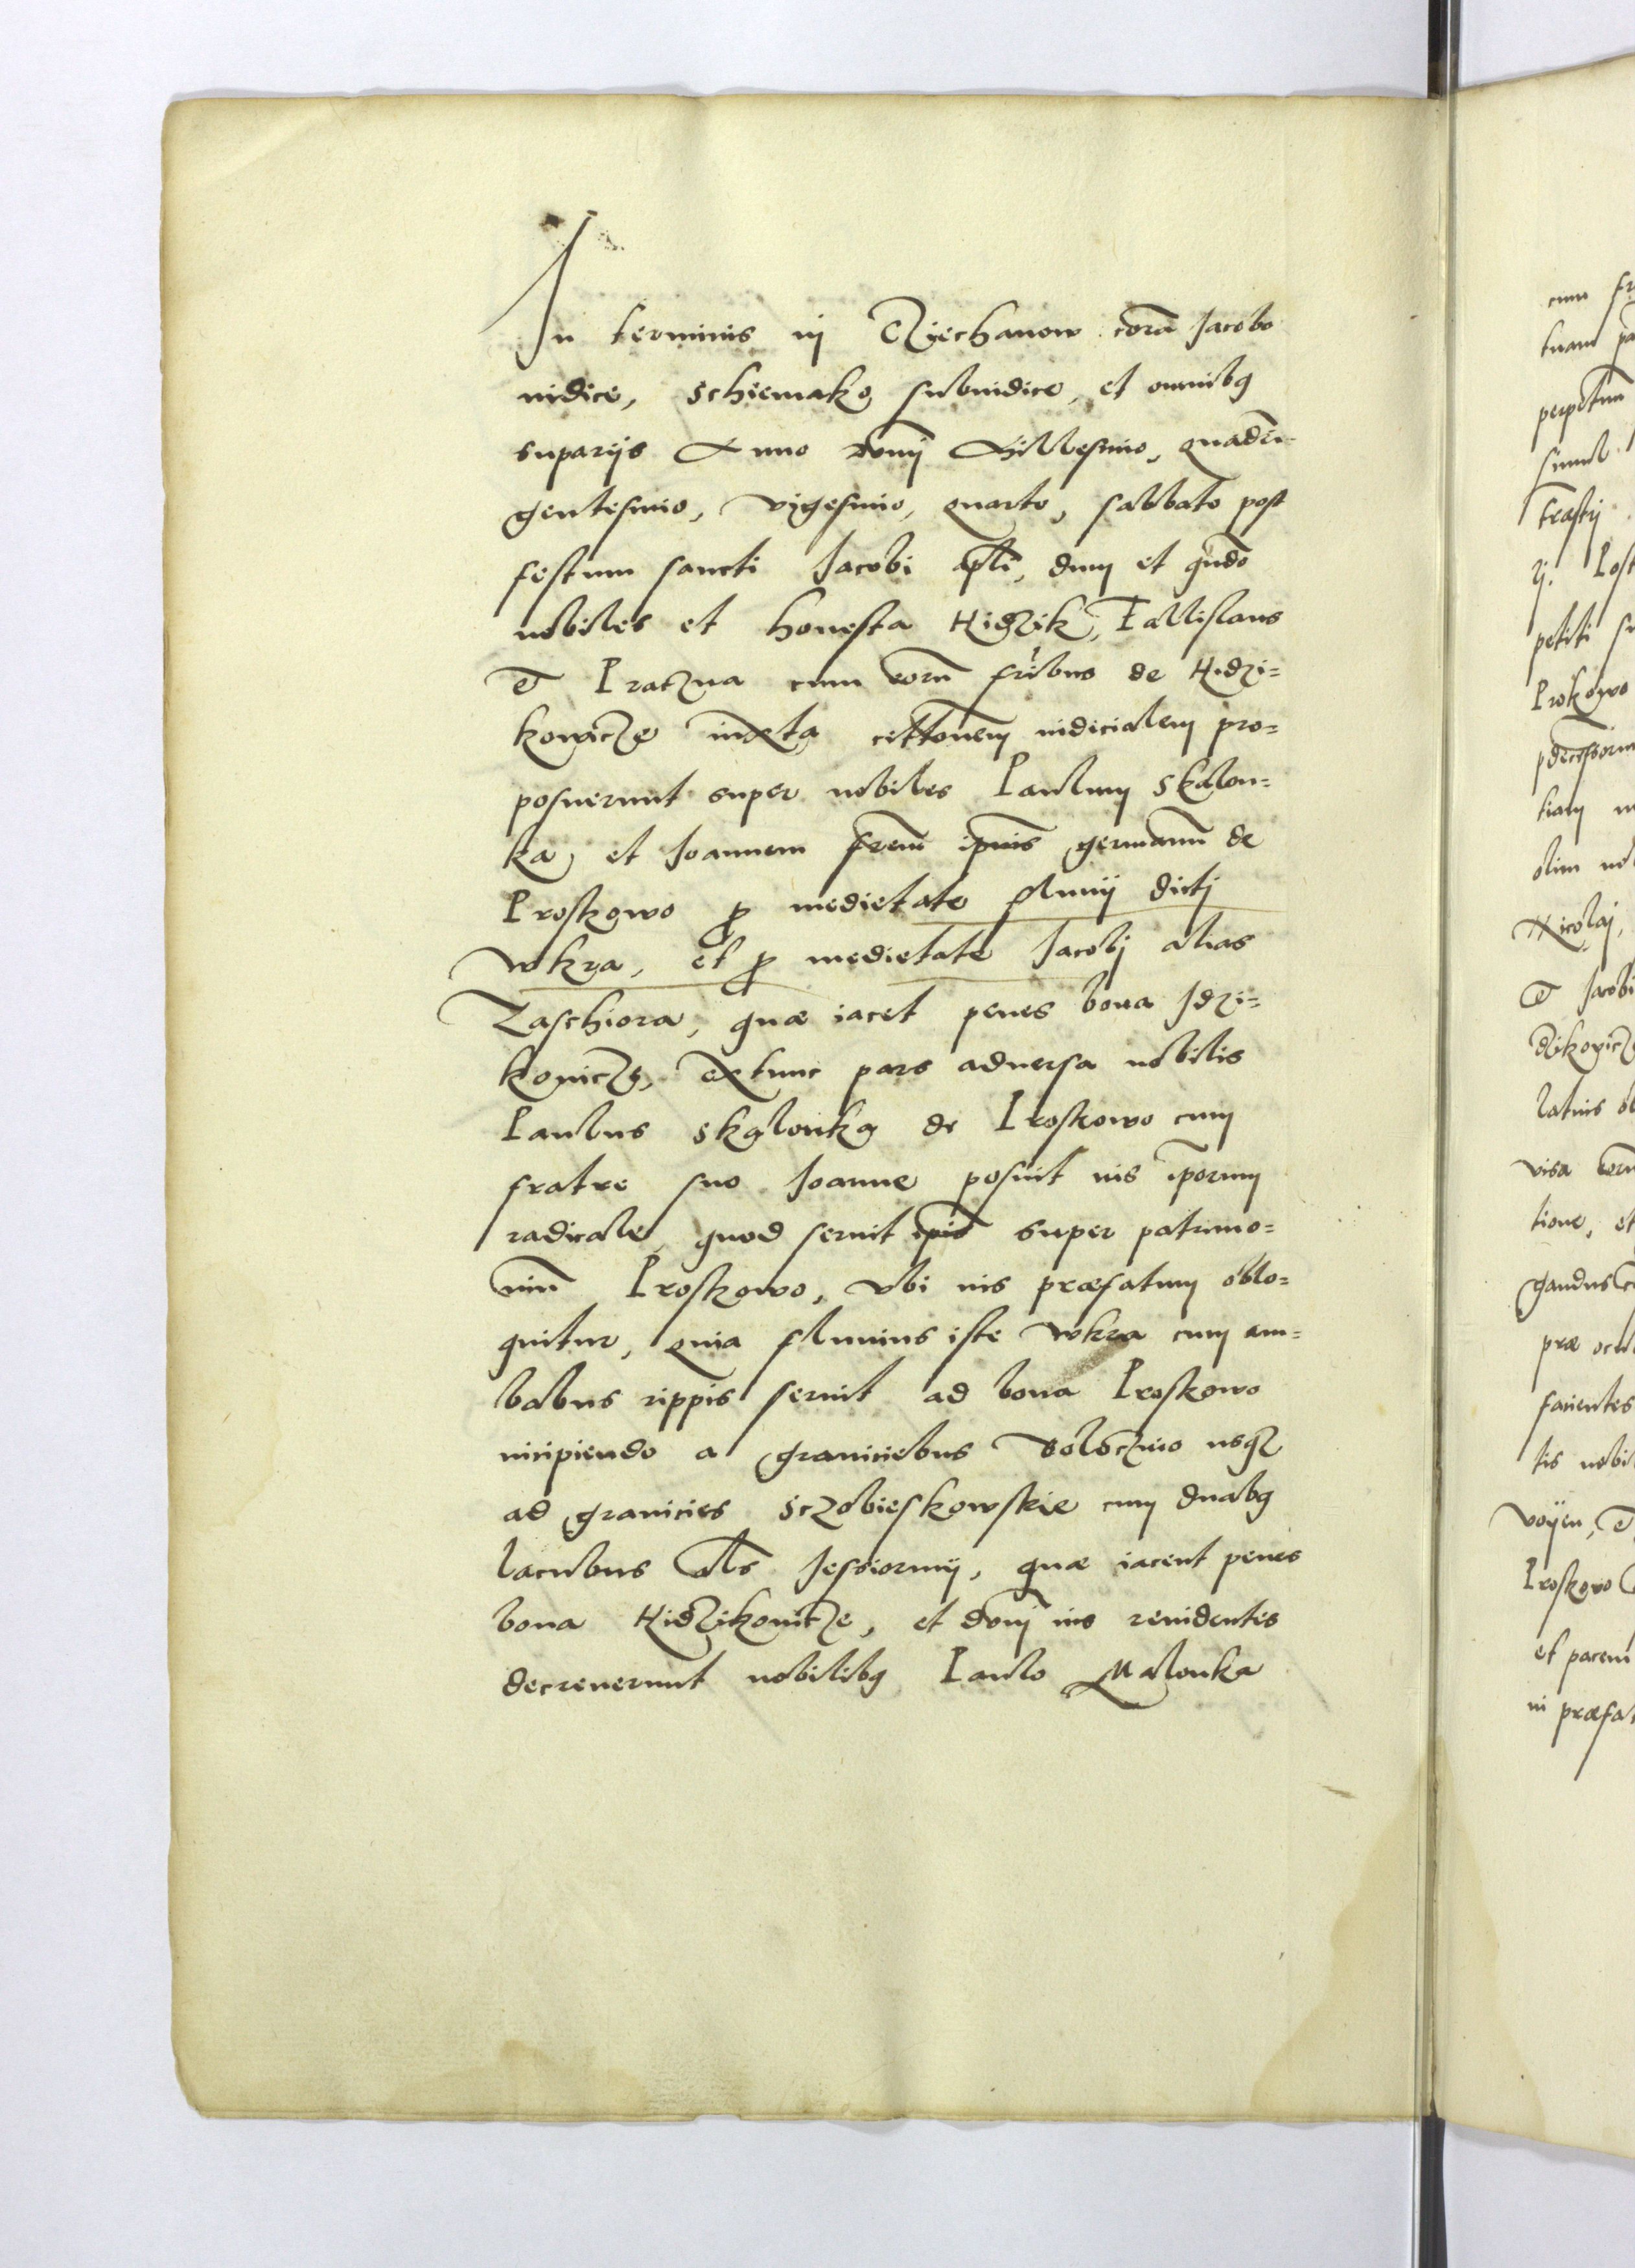 In terminis in Cziechanow cora Jacobo
iudice, Schiemako subiudice, et omnibq
suparijs Anno domi Millesimo, quadrin-
gentesimo, vigesimo, quarto, sabbato post
festum sancti Jacobi apli, dum et qndo
nobiles et honesta Hidzik, Fallislaus
et Praczna cum eoru fribus de Hidzi=
kowicze iuxta cittonem iudicialem pro=
posuerunt super nobiles Paulum Skalon=
ka, et Joannem frem ipius germanu de
Proskowo p medietate fluuij dicti
Wkra, et p medietate Jacobj alias
Zaschiora, quae iacet penes bona Jdzi=
kouicze, extunc pars aduersa nobilis
Paulus Skalonka de Proskowo cum
fratre suo Joanne posuit ius iporum
radicale, quod seruit ipis super patrimo=
niu Proskowo, vbi ius praefatum oblo=
quitur, quia fluuius iste Wkra cum am=
babus rippis seruit ad bona Proskowo
incipiendo a graniciebus usqz
ad granicies Sczobieskowskie cum duabq
lacubus als Jessiormij, quae iacent penes
bona Hidzikouicze, et domi ius reuidentes
decreuerunt nobilibq Paulo Malonka
cum
tuam
perpetuum
simul
petiti
Proskowo
olim
Nicolaj,
et Jacobi
visa
tione, et
facientes
tis nobi
Proskowo
et pacem
in praefat